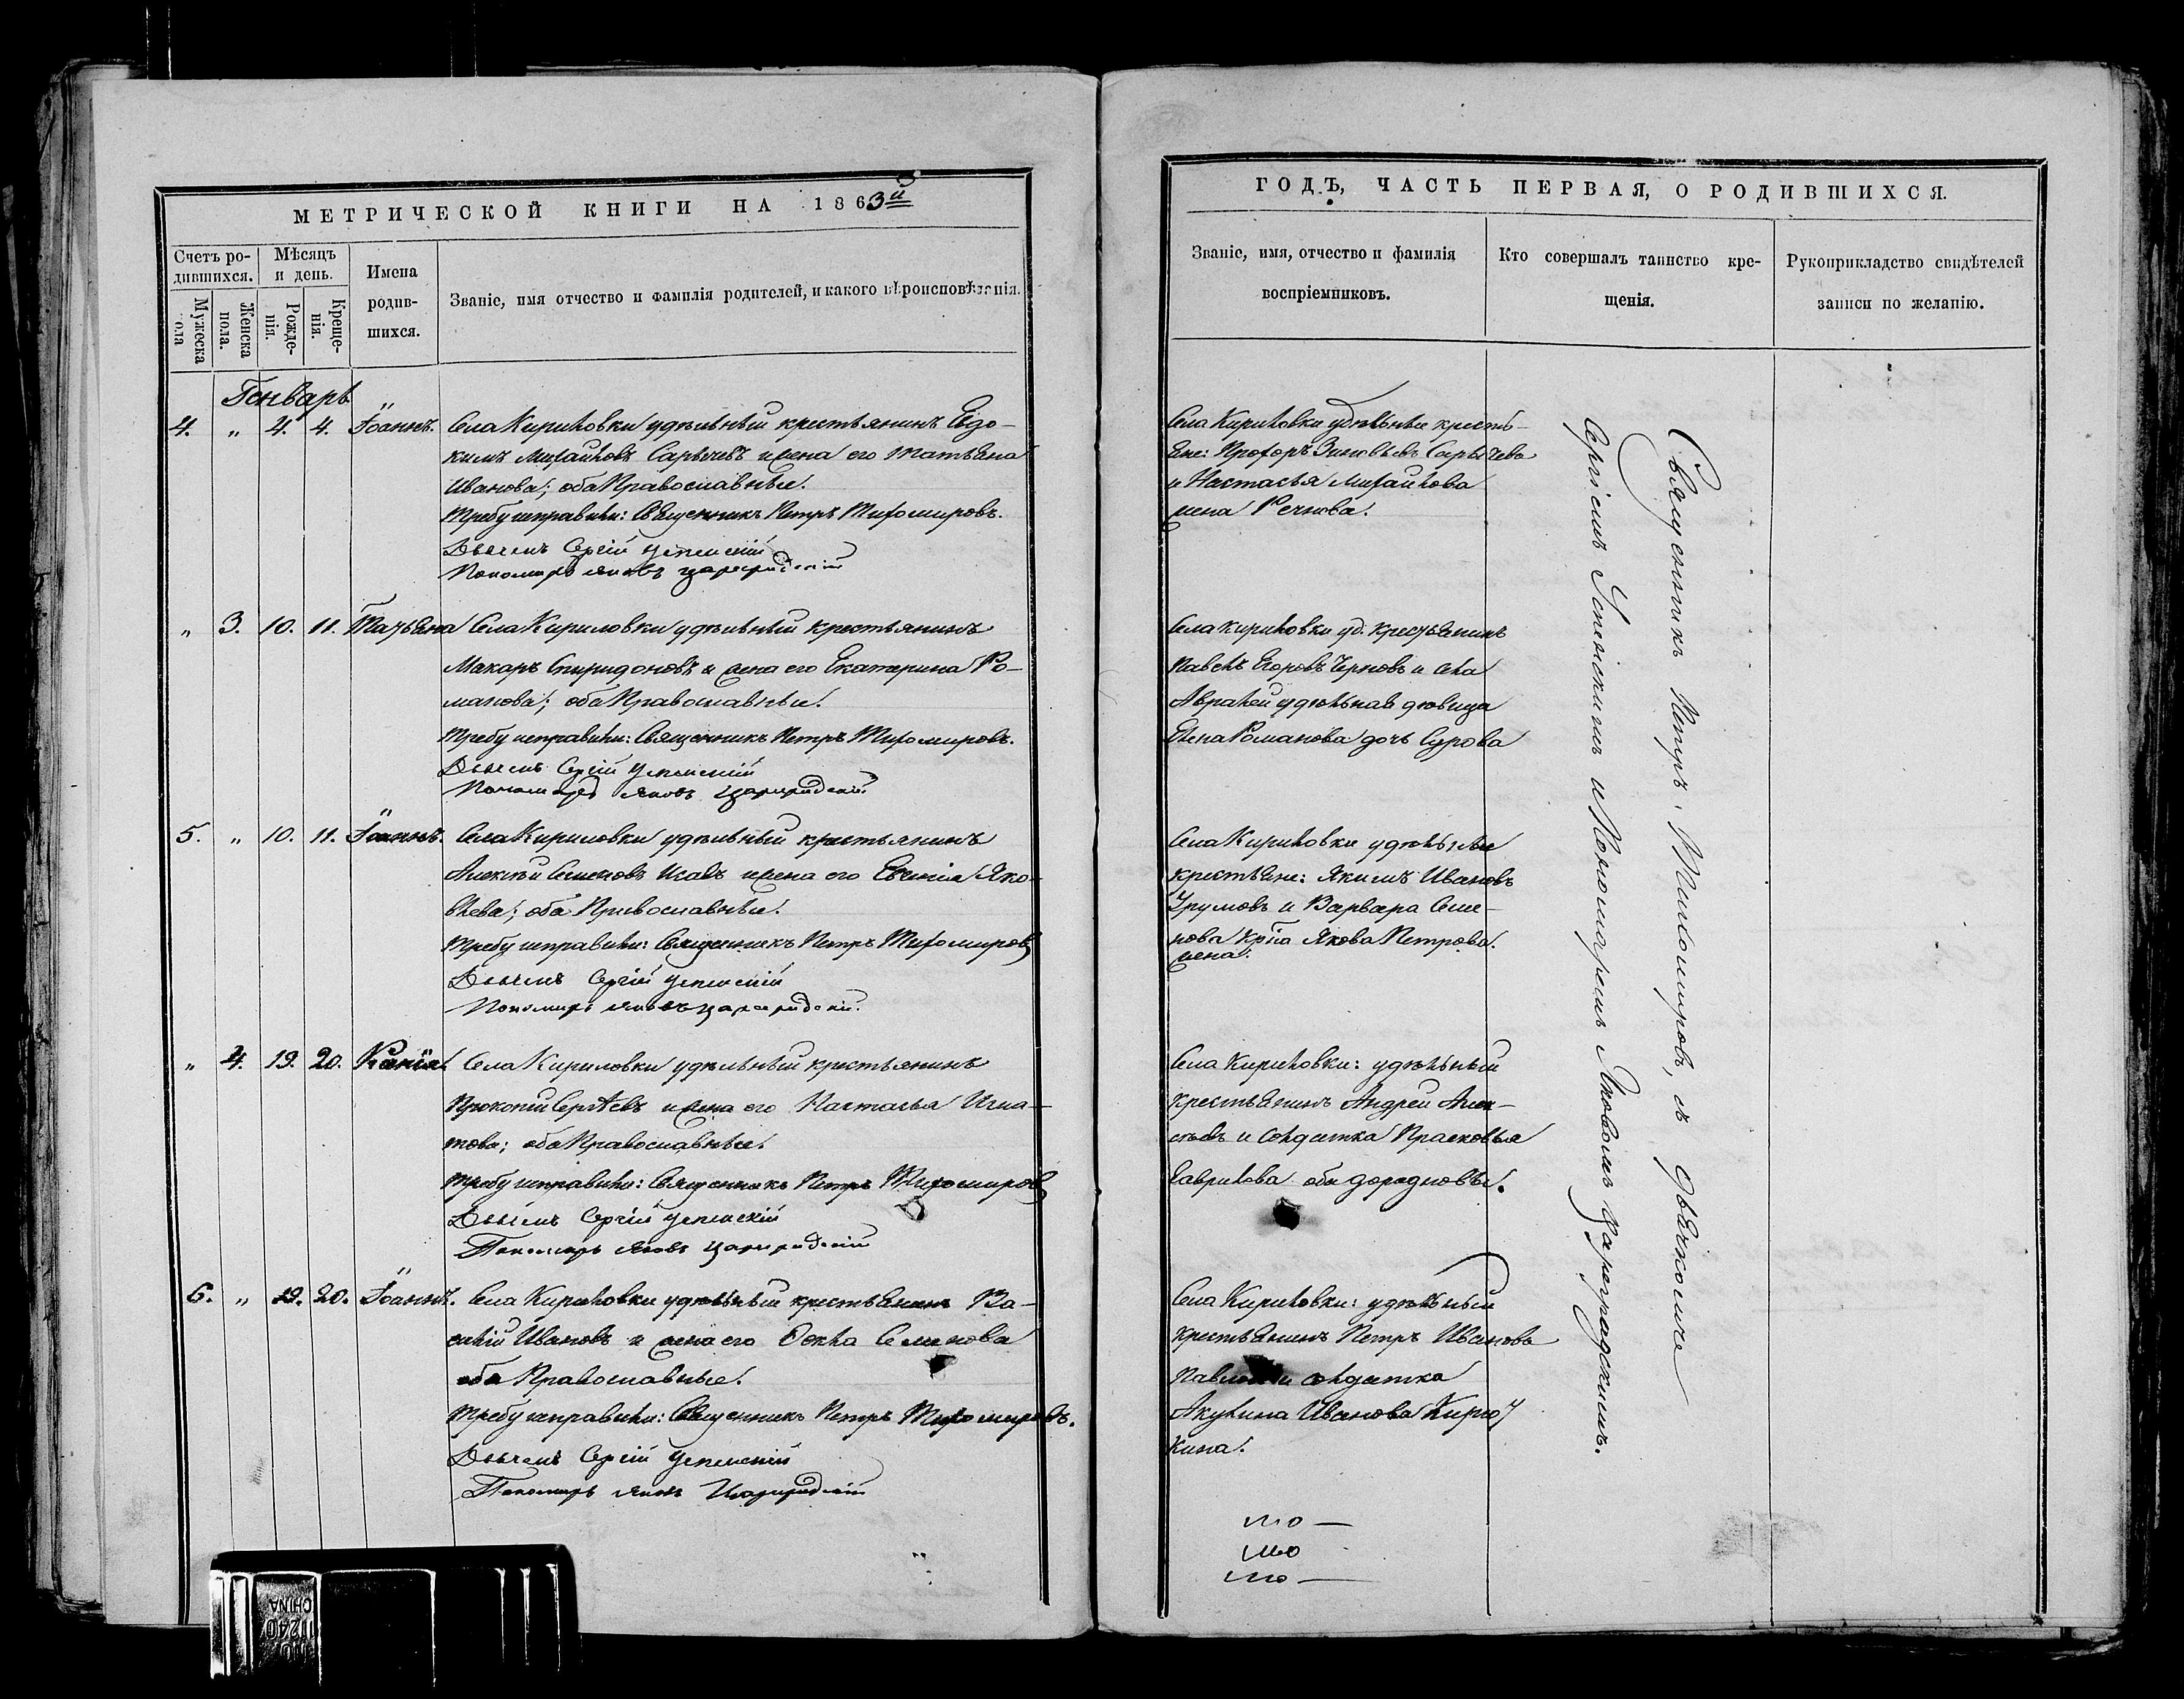 МЕТРИЧЕСКОЙ КНИГИ НА 1863й
Счетъ ро-
дившихся.
Мѣсяцъ
и день.
Мужеска
пола
Женска
пола.
Рожде-
нія.
Креще-
нія.
Имена
родив-
шихся.
Званіе, имя отчество и фамилія родителей, и какого вѣроисповѣданія.
Генварь
4. „ 4. 4. Іоаннъ. Села Кириловки удѣльный крестьянинъ Евдо-
кимъ Михайловъ Сарычевъ и жена его Татьяна
Иванова; оба Православные.
Требу исправили: Священникъ Петръ Тихомировъ.
Дьячекъ Сергій Успенскій
Пономарь Яковъ Цареградскій
„ 3. 10. 11. Татьяна Села Кириловки удѣльный крестьянинъ
Макаръ Спиридоновъ и жена его Екатерина Ро-
манова; оба Православные.
Требу исправили: Священникъ Петръ Тихомировъ.
Дьячекъ Сергій Успенскій
Пономарь Яковъ Цареградскій
5. „ 10. 11. Іоаннъ. Села Кириловки удѣльный крестьянинъ
Алексѣй Семеновъ и жена его Евгенія Яко-
влева; оба Православные.
Требу исправили: Священникъ Петръ Тихомировъ
Дьячекъ Сергій Успенскій
Пономарь Яковъ Цареградскій.
„ 4. 19. 20. Ксенія. Села Кириловки удѣльный крестьянинъ
Прокопій Сергѣевъ и жена его Настасья Игна-
това; оба Православные.
Требу исправили: Священникъ Петръ Тихомировъ
Дьячекъ Сергій Успенскій
Пономарь Яковъ Цареградскій
6. „ 19. 20. Іоаннъ. Села Кириловки удѣльный крестьянинъ Ва-
силій Ивановъ и жена его Ѳекла Семенова
оба Православные.
Требу исправили: Священникъ Петръ Тихомировъ.
Дьячекъ Сергій Успенскій
Пономарь Яковъ Цареградскій
ГОДЪ, ЧАСТЬ ПЕРВАЯ, О РОДИВШИХСЯ.
Званіе, имя, отчество и фамилія
воспріемниковъ.
Кто совершалъ таинство кре-
щенія.
Рукоприкладство свидѣтелей
записи по желанію.
Села Кириловки удѣльные кресть-
яне: Прохоръ Зиновьевъ Сарычевъ
и Настасья Михайлова
жена
Села Кириловки уд. крестьянинъ
Павелъ Егоровъ Черновъ и села
Авралей удѣльная дѣвица
Елена Романова дочь Сурова
Села Кириловки удѣльные
крестьяне: Якимъ Ивановъ
и Варвара Семе-
нова Якова Петрова.
жена.
Села Кириловки: удѣльный
крестьянинъ Андрей Алек-
сѣевъ и солдатка Прасковья
Гаврилова оба
Села Кириловки: удѣльный
крестьянинъ Петръ Ивановъ
и солдатка
Акулина Иванова Кирю
кина.
Священникъ Петръ Тихомировъ, съ дьячкомъ
Сергіемъ Успенскимъ и Пономаремъ Яковомъ Цареградскимъ.